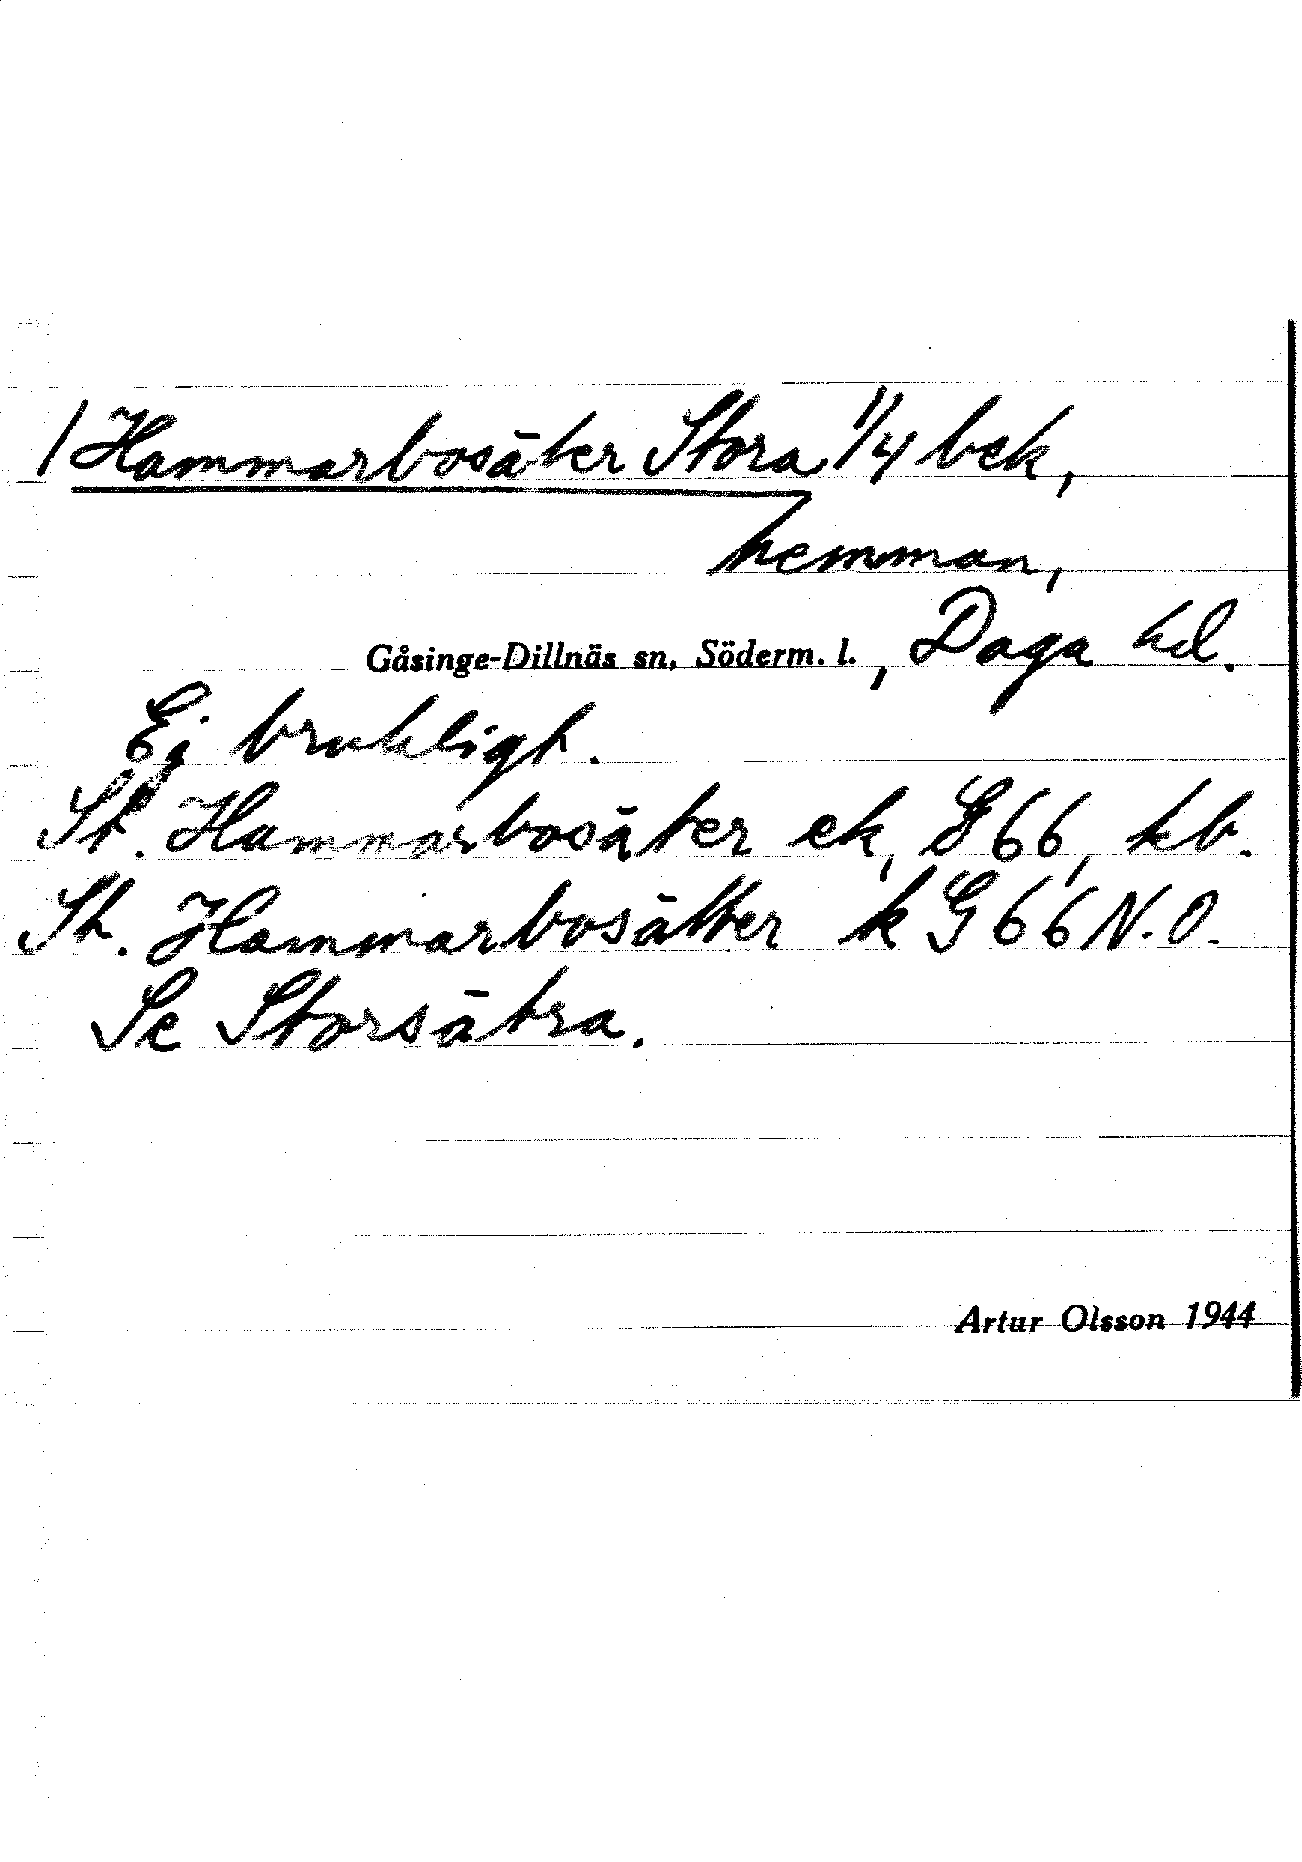 / Hammarbosäter Stora 1/4 bek,
hemman,
Gåsinge-Dillnäs sn, Söderm. l., Daga hd.
Ej brukligt.
St. Hammarbosäter ek, G 66, kb.
St. Hammarbosätter k G 66 N.O.
Se Storsätra.
Artur Olsson 1944